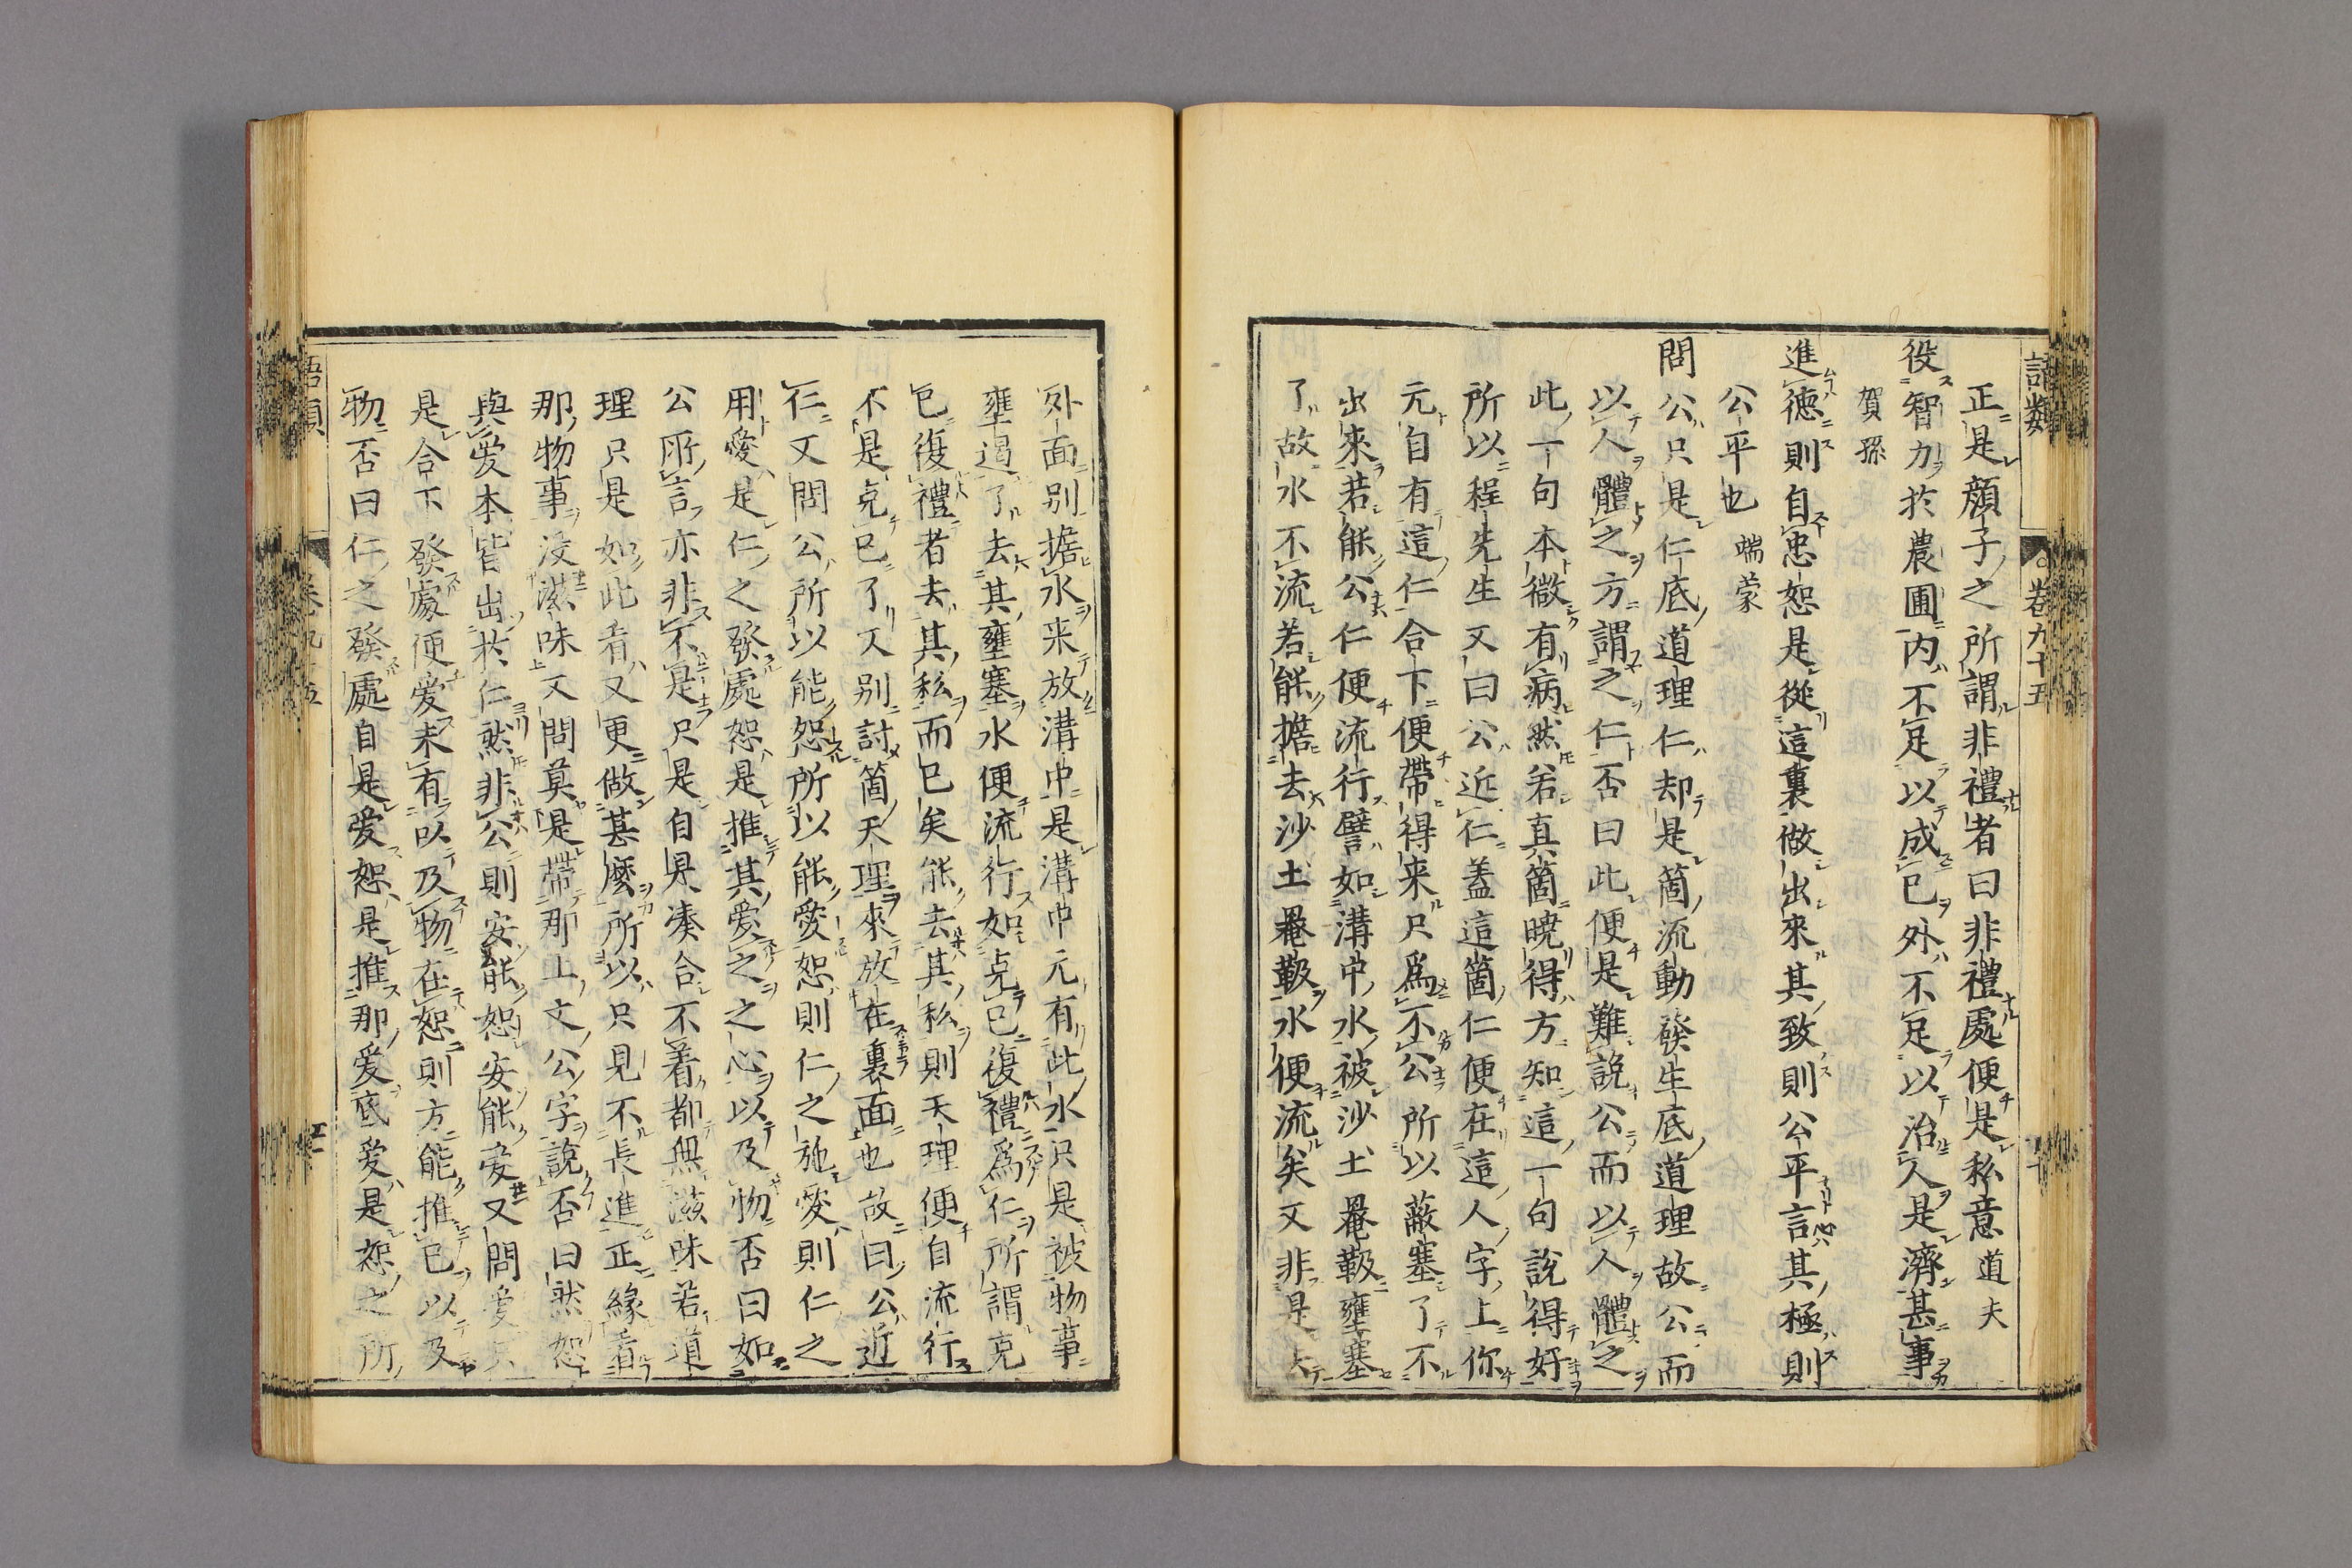 語類 卷九十五
正是顔子之所謂非禮者曰非禮處便是私意道夫
役智力於農圃内不足以成已外不足以治人是濟甚事
賀孫
進德則自忠恕是從這裏做出來其致則公平言其極則
公平也 端蒙
問公只是仁底道理仁却是箇流動發生底道理故公而
以人體之方謂之仁否曰此便是難說公而以人體之
此一句本微有病然若真箇曉得方知這一句說得好
所以程先生又曰公近仁蓋這箇仁便在這人字上你
元自有這仁合下便帶得来只爲不公所以蔽塞了不
出來若能公仁便流行譬如溝中水被沙土罨靸壅塞
了故水不流若能擔去沙土罨靸水便流矣又非是去
外面别擔水来放溝中是溝中元有此水只是被物事
壅遏了去其壅塞水便流行如克已復禮爲仁所謂克
已復禮者去其私而已矣能去其私則天理便自流行
不是克已了又别討箇天理來放在裏面也故曰公近
仁又問公所以能恕所以能愛恕則仁之施愛則仁之
用愛是仁之發處恕是推其愛之之心以及物否曰如
公所言亦非不是只是自是湊合不着都無滋味若道
理只是如此看又更做甚麽所以只見不長進正緣看
那物事没滋味又問莫是帶那上文公字說否曰然恕
與爱本皆出於仁然非公則安能恕安能爱又問爱只
是合下發處便爱未有以及物在恕則方能推已以及
物否曰仁之發處自是爱恕是推那爱底爱是恕之所
語類